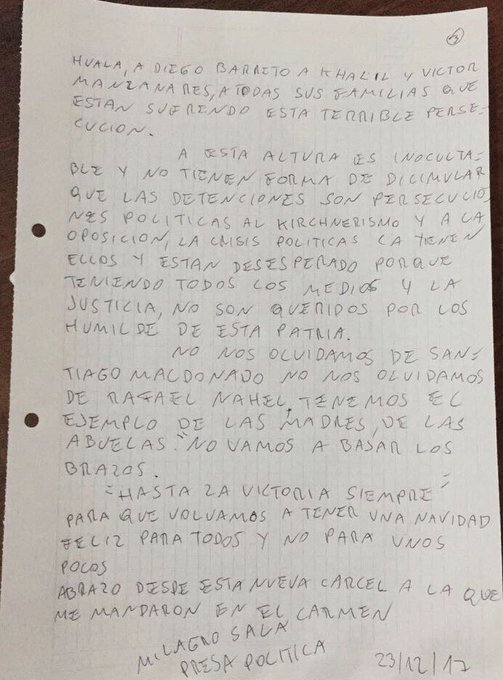 3
HUALA, A DIEGO BARRETO A KHALIL Y VICTOR
MANZANARES, A TODAS SUS FAMILIAS QUE
ESTAN SUFRENDO ESTA TERRIBLE PERSE-
CUCION.
A ESTA ALTURA ES INOCULTA-
BLE Y NO TIENEN FORMA DE DICIMULAR
QUE LAS DETENCIONES SON PERSECUCIO
NES POLITICAS AL KIRCHNERISMO Y A LA
OPOSICION, LA CRISIS POLITICAS LA TIENEN
ELLOS Y ESTAN DESESPERADO PORQUE
TENIENDO TODOS LOS MEDIOS Y LA
JUSTICIA, NO SON QUERIDOS POR LOS
HUMILDE DE ESTA PATRIA.
NO NOS OLVIDAMOS DE SAN-
TIAGO MALDONADO NO NOS OLVIDAMOS
DE RAFAEL NAHEL, TENEMOS EL
EJEMPLO DE LAS MADRES, DE LAS
ABUELAS. NO VAMOS A BAJAR LOS
BRAZOS.
"HASTA LA VICTORIA SIEMPRE"
PARA QUE VOLVAMOS A TENER UNA NAVIDAD
FELIZ PARA TODOS Y NO PARA UNOS
POCOS
ABRAZO DESDE ESTA NUEVA CARCEL A LA QUE
ME MANDARON EN EL CARMEN
MILAGRO SALA
PRESA POLITICA
23/12/17